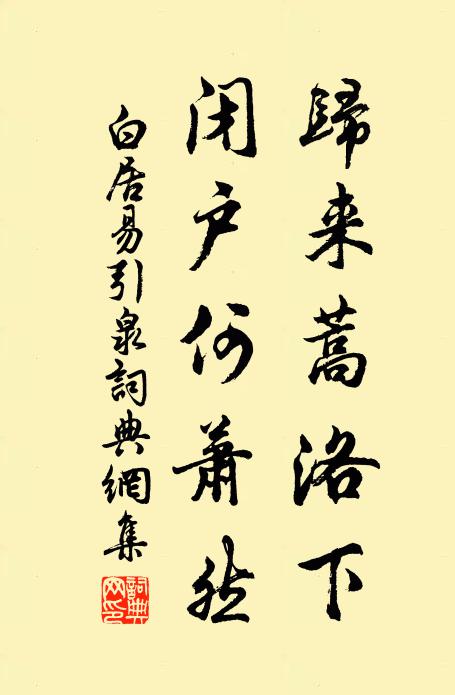 歸来蒿洛下
闭户何蕭然
白居易引泉詞典網集
詞典
网印